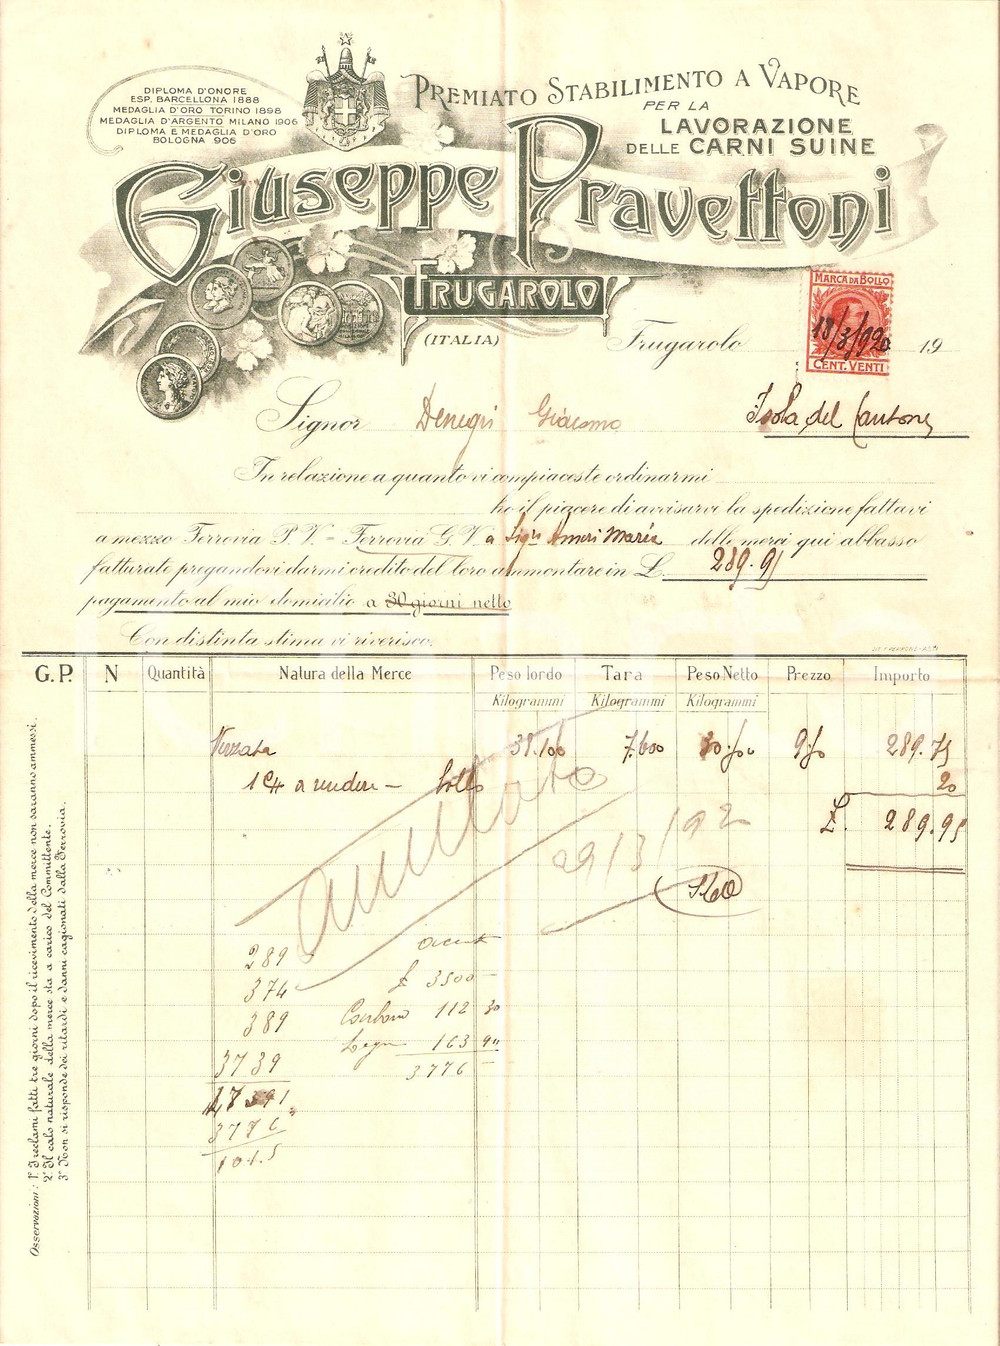 DIPLOMA D'ONORE
ESP. BARCELLONA 1888
MEDAGLIA D'ORO TORINO 1898
MEDAGLIA D'ARGENTO MILANO 1906
DIPLOMA E MEDAGLIA D'ORO
BOLOGNA 906
PREMIATO STABILIMENTO A VAPORE
PER LA
LAVORAZIONE
DELLE CARNI SUINE
Giuseppe Pravettoni
FRUGAROLO
(ITALIA)
MARCA DA BOLLO
18/3/920
CENT. VENTI
Frugarolo 19
Signor Denegri Giacomo Isola del Cantone
In relazione a quanto vi compiaceste ordinarmi
ho il piacere di avvisarvi la spedizione fattavi
a mezzo Ferrovia P. V. = Ferrovia G. V. a Sigra Ameri Maria delle merci qui abbasso
fatturate pregandovi darmi credito del loro ammontare in L. 289.95
pagamento al mio domicilio a 30 giorni netto
Con distinta stima vi riverisco.
G. P. N Quantità Natura della Merce Peso lordo Tara Peso Netto Prezzo Importo
Kilogrammi Kilogrammi Kilogrammi
38.100 7.600 30.500 9,50 289.75
1 a rendere – bollo 20
£. 289.95
annullato
29/3/920
289
374
389
3739
3776
101.5
£ 3500 –
Carbone 112 30
Legna 163 90
3776 –
Osservazioni: 1º I reclami fatti tre giorni dopo il ricevimento della merce non saranno ammessi.
2º Il calo naturale della merce sta a carico del Committente.
3º Non si risponde dei ritardi e danni cagionati dalla Ferrovia.